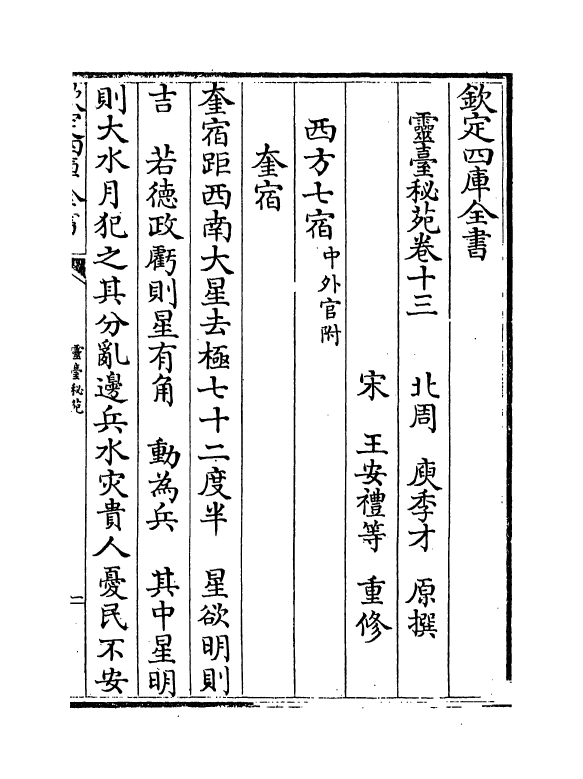 欽定四庫全書
靈臺秘苑卷十三
北周　庾季才　原撰
宋　王安禮等　重修
西方七宿中外官附
奎宿
奎宿距西南大星去極七十二度半　星欲明則
吉　若德政虧則星有角　動為兵　其中星明
則大水月犯之其分亂邊兵水灾貴人憂民不安
靈臺秘苑